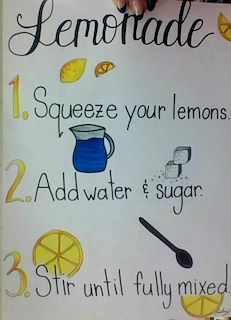 Lemonade
1. Squeeze your lemons.
2. Add water & sugar.
3. Stir until fully mixed.